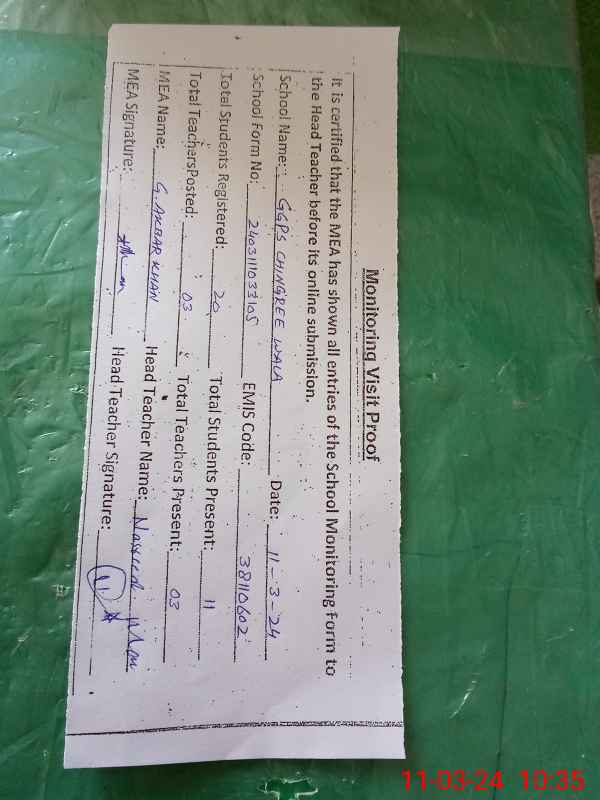 Monitoring Visit Proof
It is certified that the MEA has shown all entries of the School Monitoring Form to
the Head Teacher before its online submission.
School Name: GGPS CHINGREE WALA Date: 11-3-24
School Form No: 240311033105 EMIS Code: 38110602
Total Students Registered: 20 Total Students Present: 11
Total TeachersPosted: 03 Total Teachers Present: 03
MEA Name: G. AKBAR KHAN Head Teacher Name:
MEA Signature: Head Teacher Signature:
11-03-24 10:35